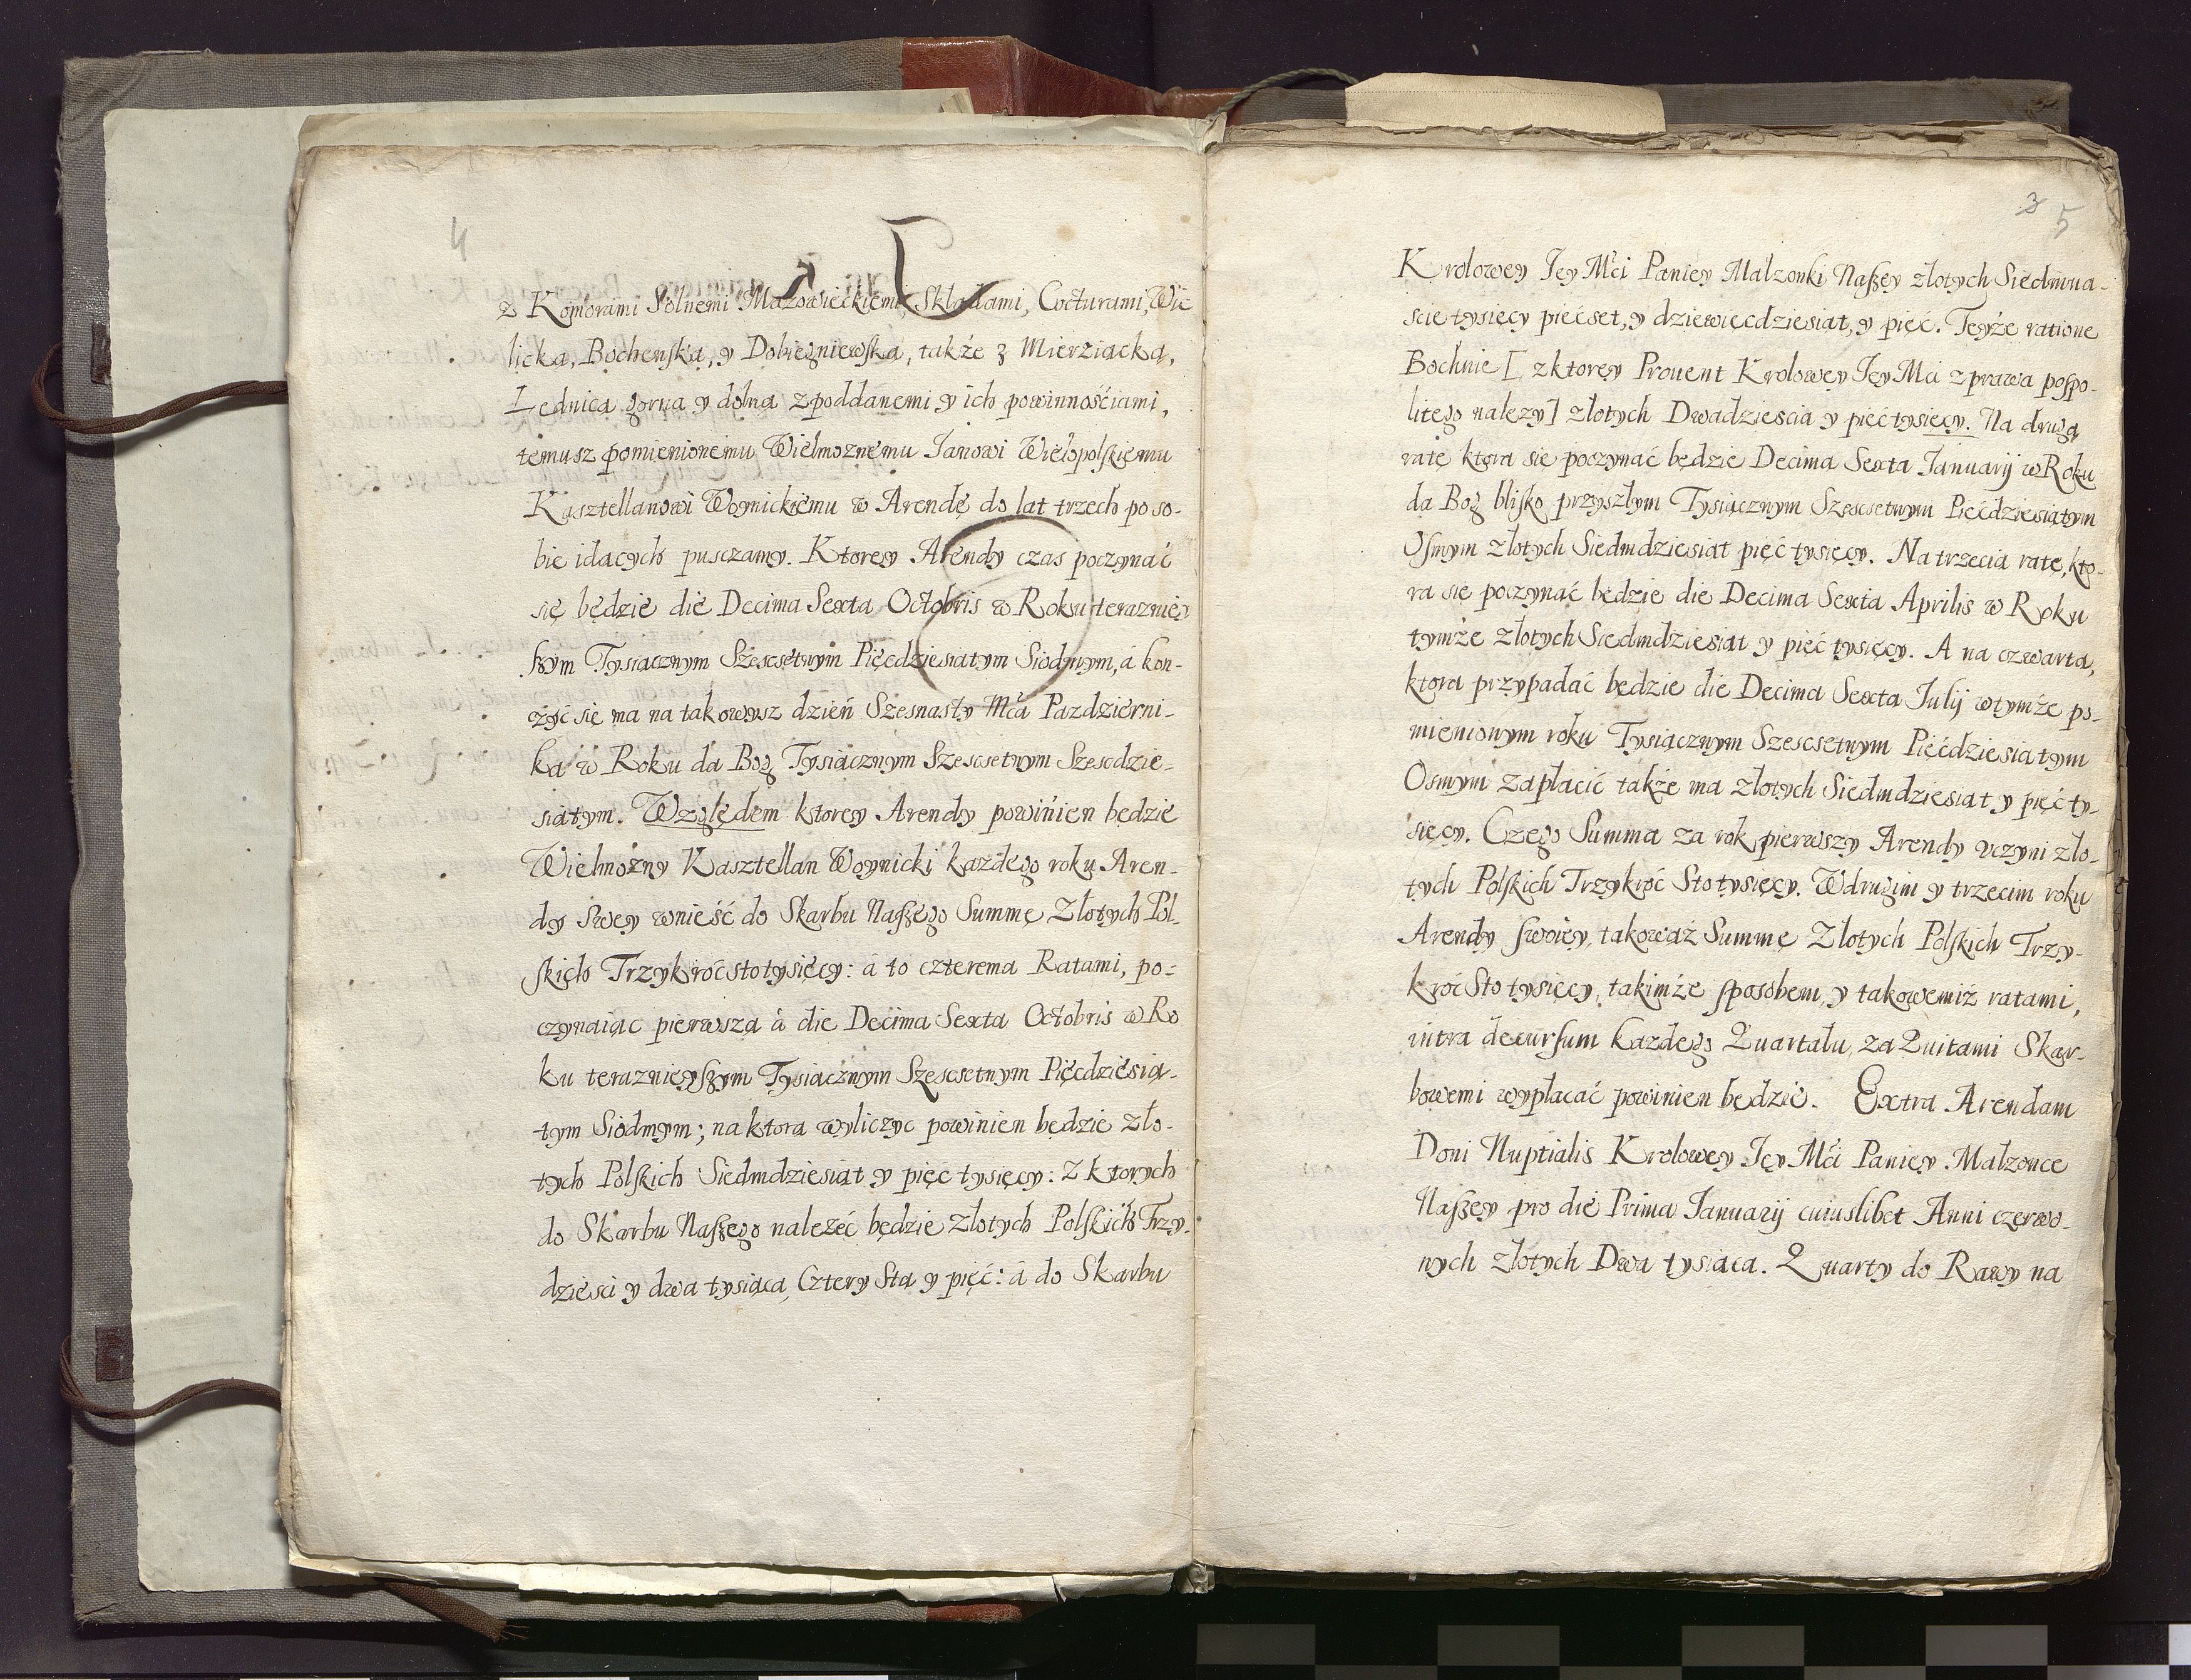 4
z Komorámi Solnemi Mazowieckiemi, Składami, Cocturami, Wie
licką, Bochenską, y Dobiegniewską, także z Mierziącką,
Lednicą gorną y dolną z poddanemi y ich powinnościami,
temusz pomienionemu Wielmoznemu Janowi Wielopolskiemu
Kasztellanowi Woynickiemu w Arendę do lat trzech po so-
bie idących pusczamy. Ktorey Arendy czas poczynać
się będzie die Decima Sexta Octobris w Roku teraznie⸗
szym Tysiącznym Szescsetnym Pięćdziesiatym Siodmym, á kon-
czyć się ma na takowysz dzień Szesnasty Mca Pazdzierni-
ka w Roku da Bog Tysiącznym Szescsetnym Szescdzie-
siatym. Względem ktorey Arendy powinien będzie
Wielmożny Kasztellan Woynicki każdego roku Aren-
dy swey wnieść do Skarbu Naszego Summę Złotych Pol-
skich Trzykroć sto tysięcy: á to czterema Ratami, po-
czynaiąc pierwszą á die Decima Sexta Octobris w Ro
ku teraznieyszym Tysiącznym Szescsetnym Pięcdziesią-
tym Siodmym; na ktora wyliczyc powinien będzie zło-
tych Polskich Siedmdziesiąt y pięć tysięcy: z ktorych
do Skarbu Naszego należeć będzie złotych Polskich Trzy-
dziesci y dwa tysiąca, Cztery Sta y pięć: á do Skarbu
3 5
Krolowey Jey Mci Paniey Małzonki Naszey złotych Siedmna-
scie tysięcy piećset, y dziewięcdziesiat, y pięć. Teyże ratione
Bochnie [ z ktorey Prouent Krolowey Jey Mci z prawa pospo-
litego nalezy] złotych Dwadziescia y pięć tysięcy. Na drugą
ratę ktora się poczynać będzie Decima Sexta Januarij w Roku
da Bog blisko przyszłym Tysiącznym Szescsetnym Pięćdziesiątym
Osmym złotych Siedmdziesiat pięć tysięcy. Na trzecia ratę, kto-
ra się poczynać będzie die Decima Sexta Aprilis w Roku
tymże złotych Siedmdziesiat y pięć tysięcy. A na czwarta,
ktora przypadać będzie die Decima Sexta Julij w tymże po-
mienionym roku Tysiącznym Szescsetnym Pięćdziesiatym
Osmym zapłacić także ma złotych Siedmdziesiat y pięć ty-
sięcy. Czego Summa za rok pierwszy Arendy vczyni zło-
tych Polskich Trzykroć Sto tysięcy. W drugim y trzecim roku
Arendy swoiey, takowąż Summę Złotych Polskich Trzy-
kroć Sto tysięcy, takimże sposobem, y takowemiż ratami,
intra decursum każdego Quartału, za Quitami Skar-
bowemi wypłacać powinien będzie. Extra Arendam
Doni Nuptialis Krolowey Jey Mci Paniey Małzonce
Naszey pro die Prima Januarij cuiuslibet Anni czerwo-
nych złotych Dwa tysiąca. Quarty do Rawy na